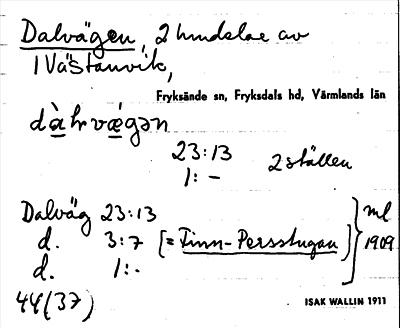 Dalvägen, 2 hmdslar av
1 Västanvik,
Fryksände sn, Fryksdals hd, Värmlands län
dàhrvǽgən
23:13 2 ställen
1:-
Dalväg 23:13
d. 3:7 [= Finn-Persstugan]
d. 1:-
} ml 1909
44(37)
ISAK WALLIN 1911